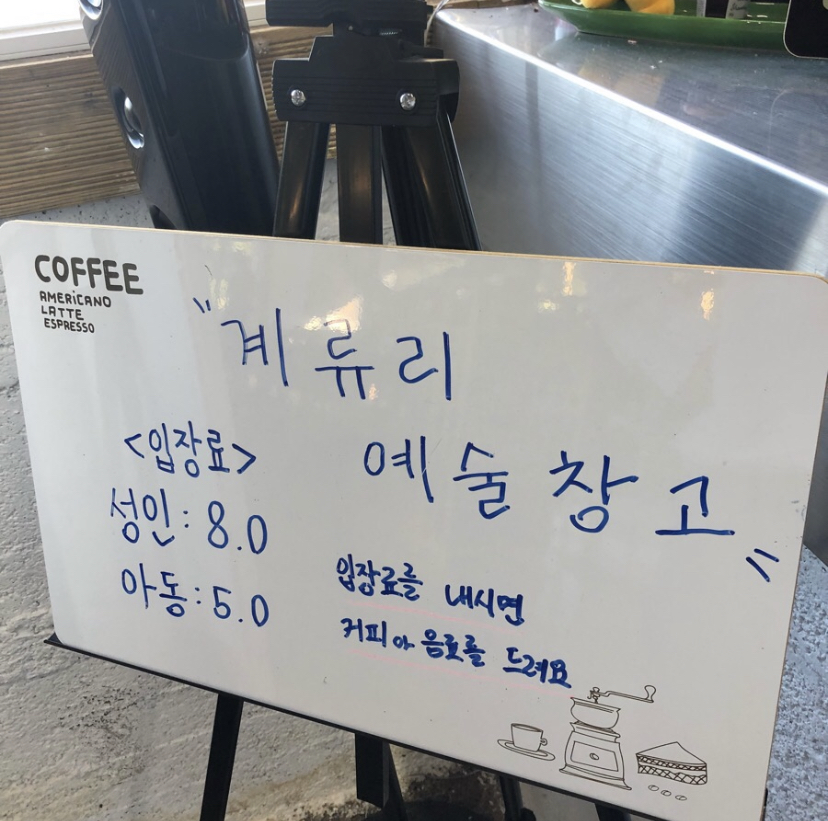 COFFEE
AMERICANO
LATTE
ESPRESSO
"계류리
예술창고"
<입장료>
성인: 8.0
아동: 5.0
입장료를 내시면
커피아 음료를 드려요